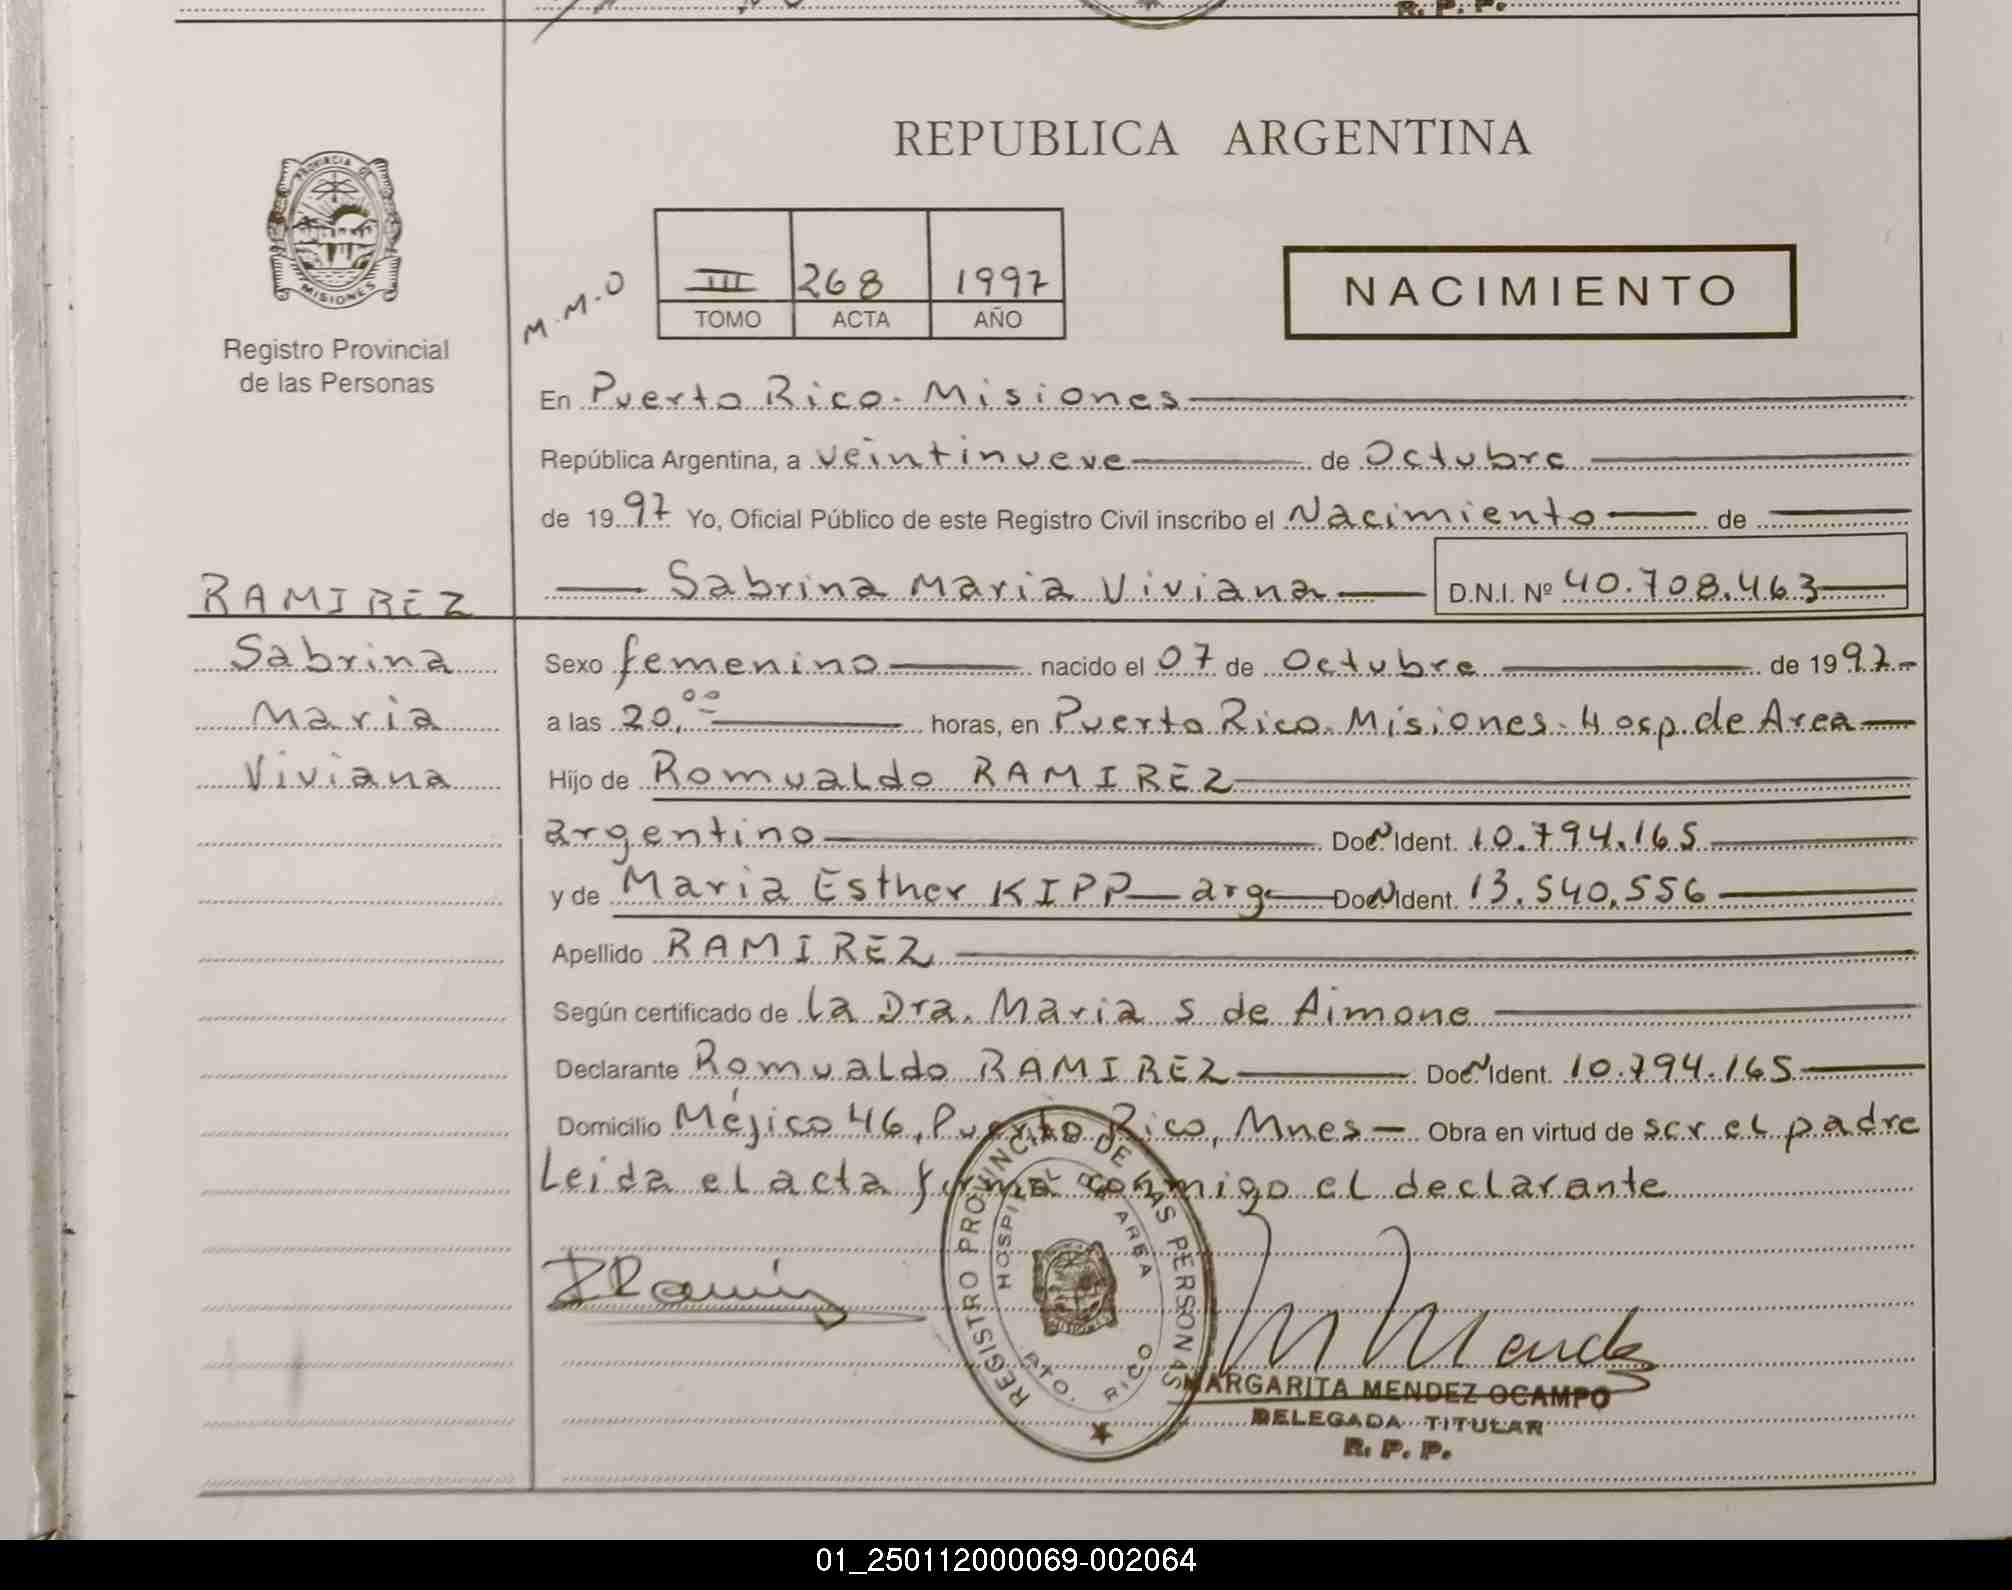 R. P. P.
REPUBLICA ARGENTINA
PROVINCIA DE
MISIONES
Registro Provincial
de las Personas
M.M.O
III 268 1997
TOMO ACTA AÑO
NACIMIENTO
En Puerto Rico. Misiones
República Argentina, a veintinueve de Octubre
de 19 97 Yo, Oficial Público de este Registro Civil inscribo el Nacimiento de
Sabrina Maria Viviana D.N.I. Nº 40.708.463
RAMIREZ
Sabrina
Maria
Viviana
Sexo femenino nacido el 07 de Octubre de 19 97
a las 20,00 horas, en Puerto Rico. Misiones. Hosp. de Area
Hijo de Romualdo RAMIREZ
argentino Doc. Ident. 10.794.165
y de Maria Esther KIPP arg Doc. Ident. 13.540.556
Apellido RAMIREZ
Según certificado de la Dra. Maria S de Aimone
Declarante Romualdo RAMIREZ Doc. Ident. 10.794.165
Domicilio Méjico 46, Puerto Rico, Mnes Obra en virtud de ser el padre
Leida el acta firma conmigo el declarante
REGISTRO PROVINCIAL DE LAS PERSONAS
HOSPITAL DE AREA
PTO. RICO
MARGARITA MENDEZ OCAMPO
DELEGADA TITULAR
R. P. P.
01_250112000069-002064